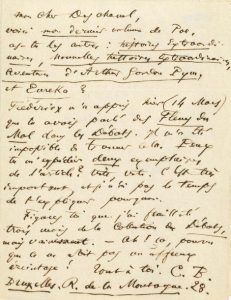 mon cher Deschanel,
voici mon dernier volume de Poe,
as-tu les autres : histoires Extraordi-
naires, nouvelles histoires Extraordinaires,
Aventures d'Arthur Gordon Pym,
et Eureka ?
m'a appris hier (14 Mars)
que tu avais parlé des Fleurs du
Mal dans les Débats. Il m'a été
impossible de trouver cela. Peux-
tu m'expédier deux exemplaires
de l'article ? vite, vite. C'est très
important, et je n'ai pas le temps
de t'expliquer pourquoi.
Figure-toi que j'ai feuilleté
trois mois de la Collection des Débats,
mais vainement. — Ah ! ça, pourvu
que ce ne soit pas un affreux
éreintage ! Tout à toi. C. B.
Bruxelles, R. de la Montagne. 28.